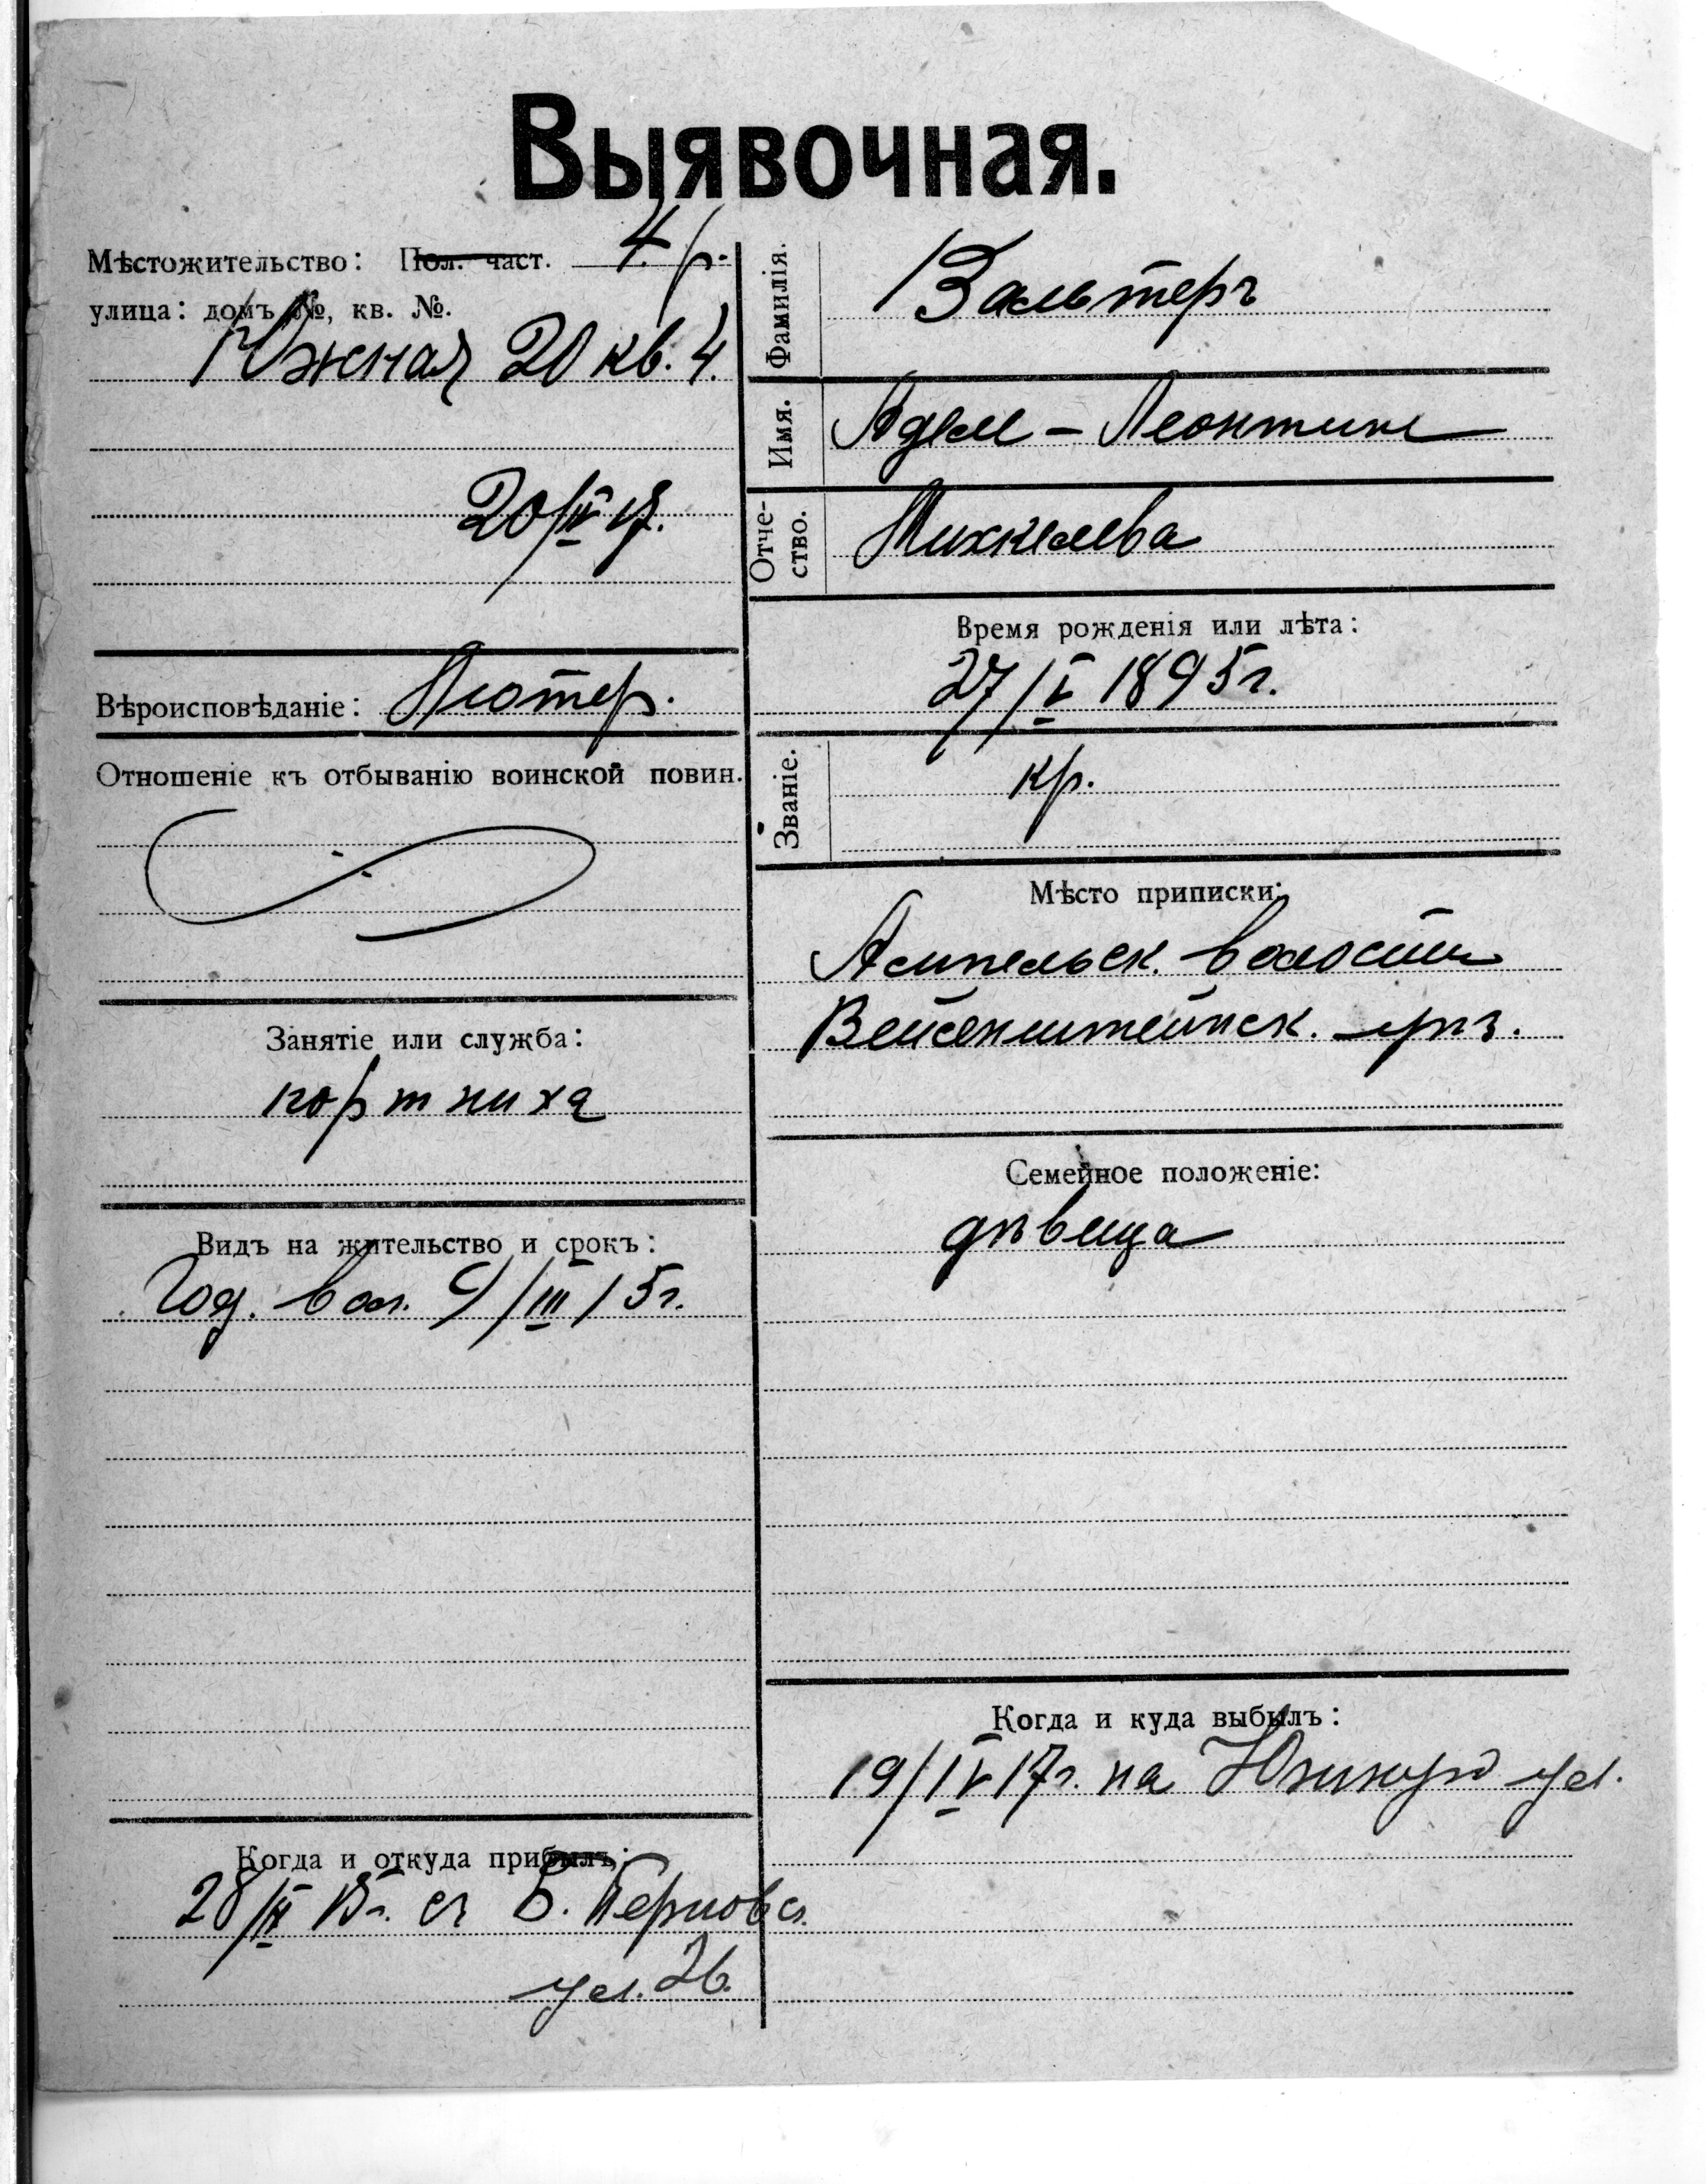 Выявочная.
Мѣстожительство: Пол. част. 4. р.
улица: домъ №, кв. №.
Южная 20 кв. 4.
20/IV 17.
Вѣроисповѣданіе: Лютер.
Отношеніе къ отбыванію воинской повин.
Занятіе или служба:
портниха
Видъ на жительство и срокъ:
Год. вол. 9/III 15г.
Когда и откуда прибылъ:
28/IX 15г. съ Б. Перновск.
ул. 26.
Фамилія. Вальтеръ
Имя. Адель - Леонтине
Отче-
ство. Михкелева
Время рожденія или лѣта:
27/V 1895г.
Званіе. кр.
Мѣсто приписки:
волости
Вейсенштейнск. у.
Семейное положеніе:
дѣвица
Когда и куда выбылъ:
19/IV 17г. на Южную ул.